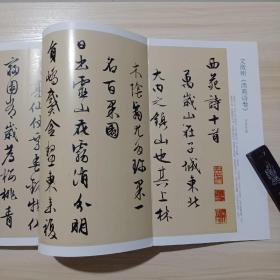 文徵明《西苑诗卷》
西苑詩十首
萬歲山在子城東北
大内之鎮山也其上林
木陰翳尤多珍果一
名百果園
日出靈山花霧消分明
員嶠戴金鰲東來複
仙仗
園常歲薦櫻桃青